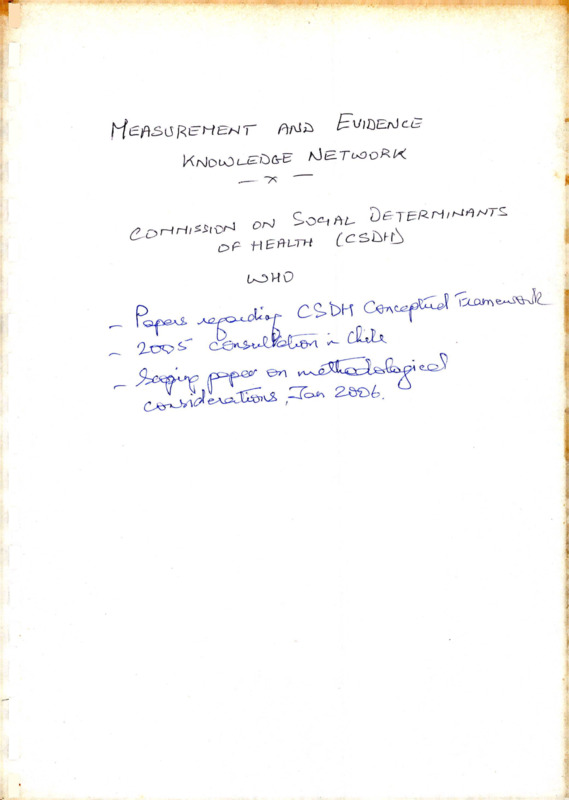 MEASUREMENT AND EVIDENCE
KNOWLEDGE NETWORK
— x —
COMMISSION ON SOCIAL DETERMINANTS
OF HEALTH (CSDH)
WHO
- Papers regarding CSDH Conceptual Framework
- 2005 Consultation in Chile
- Scoping paper on methodological
considerations, Jan 2006.